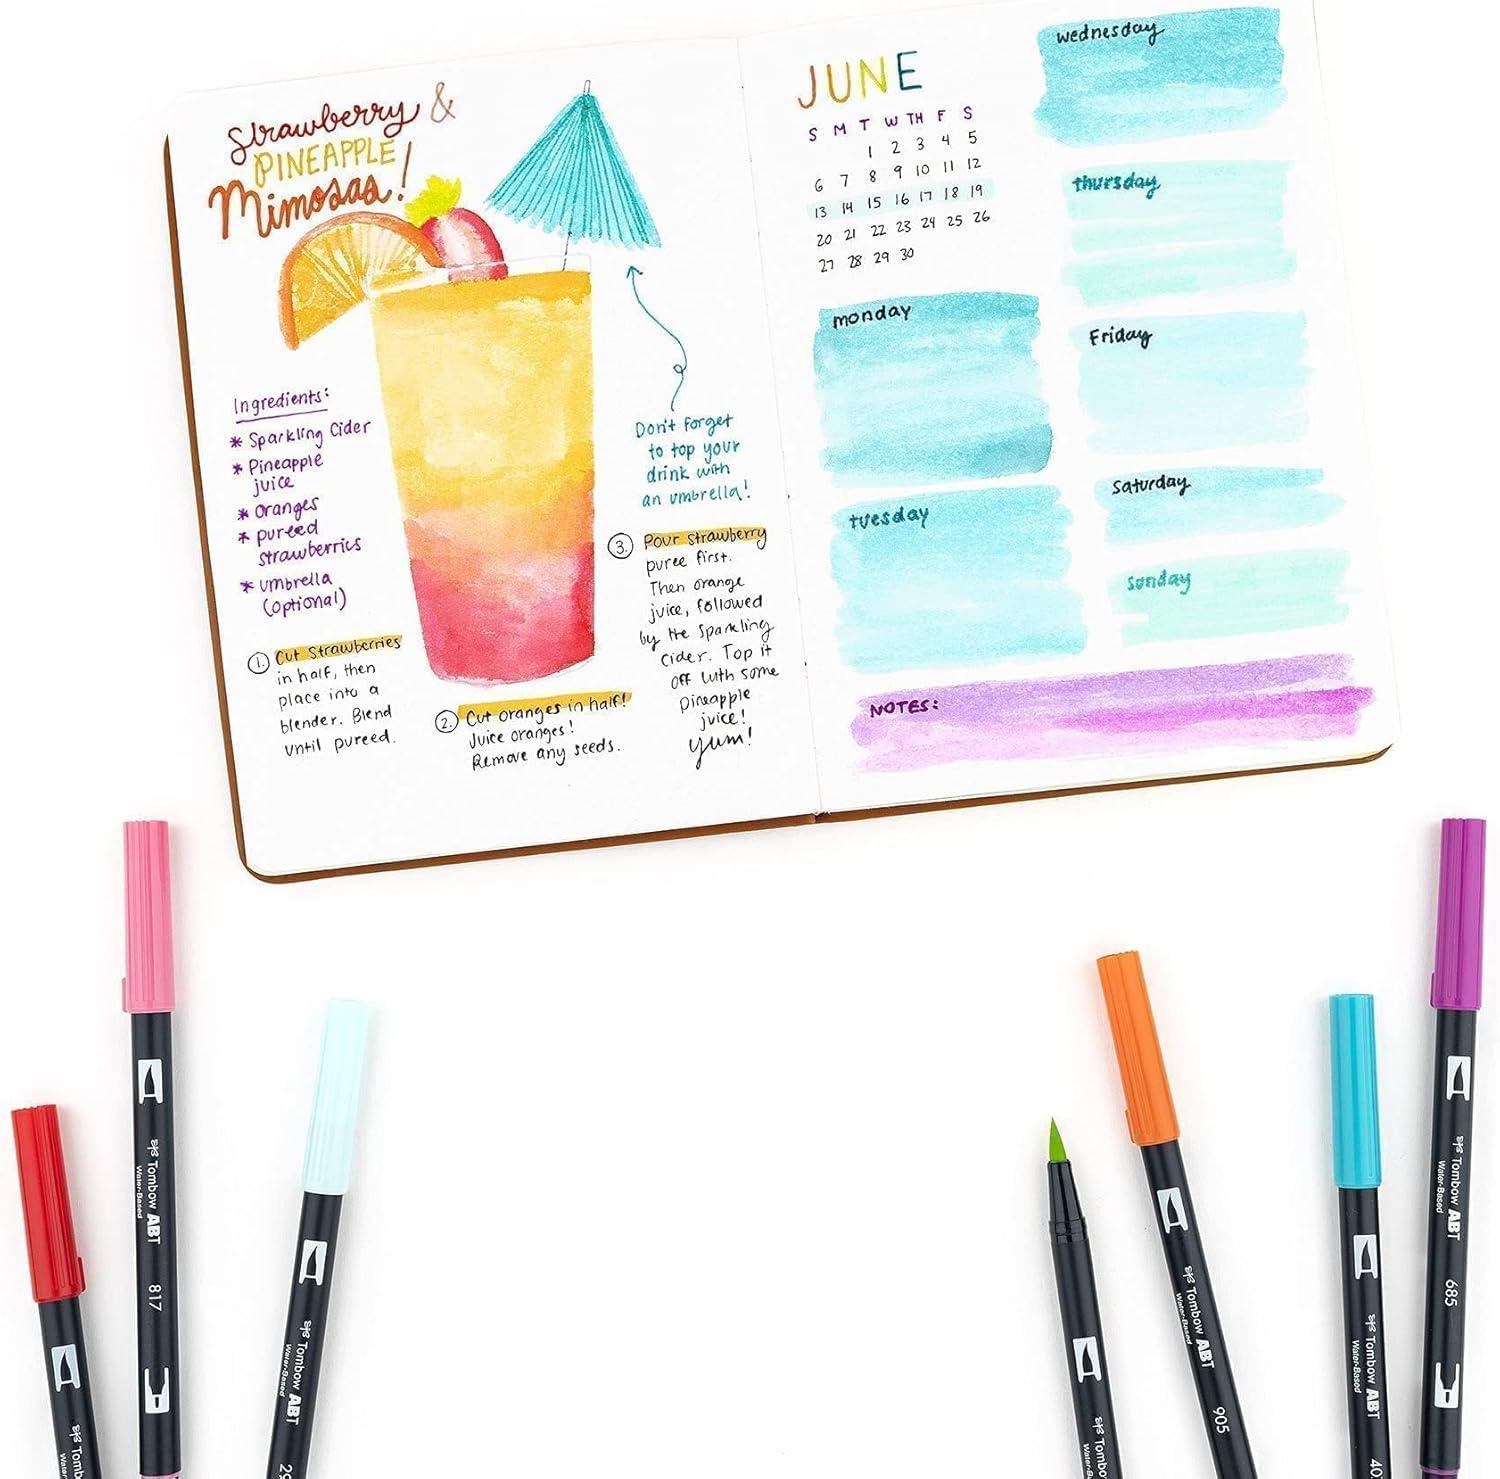 Strawberry &
PINEAPPLE
Mimosas!
Ingredients:
* Sparkling Cider
* Pineapple
juice
* Oranges
* pureed
strawberries
* umbrella
(optional)
Don't forget
to top your
drink with
an umbrella!
1. Cut Strawberries
in half, then
place into a
blender. Blend
until pureed.
2. Cut oranges in half!
Juice oranges!
Remove any seeds.
3. Pour Strawberry
puree first.
Then orange
juice, followed
by the Sparkling
Cider. Top it
off with some
pineapple
juice!
yum!
JUNE
S M T W TH F S
1 2 3 4 5
6 7 8 9 10 11 12
13 14 15 16 17 18 19
20 21 22 23 24 25 26
27 28 29 30
monday
tuesday
wednesday
thursday
Friday
saturday
sunday
NOTES:
Tombow ABT
Water-Based
Tombow ABT
Water-Based
817
Tombow ABT
Water-Based
29
Tombow
Tombow ABT
Water-Based
905
Tombow ABT
Water-Based
40
Tombow ABT
Water-Based
685